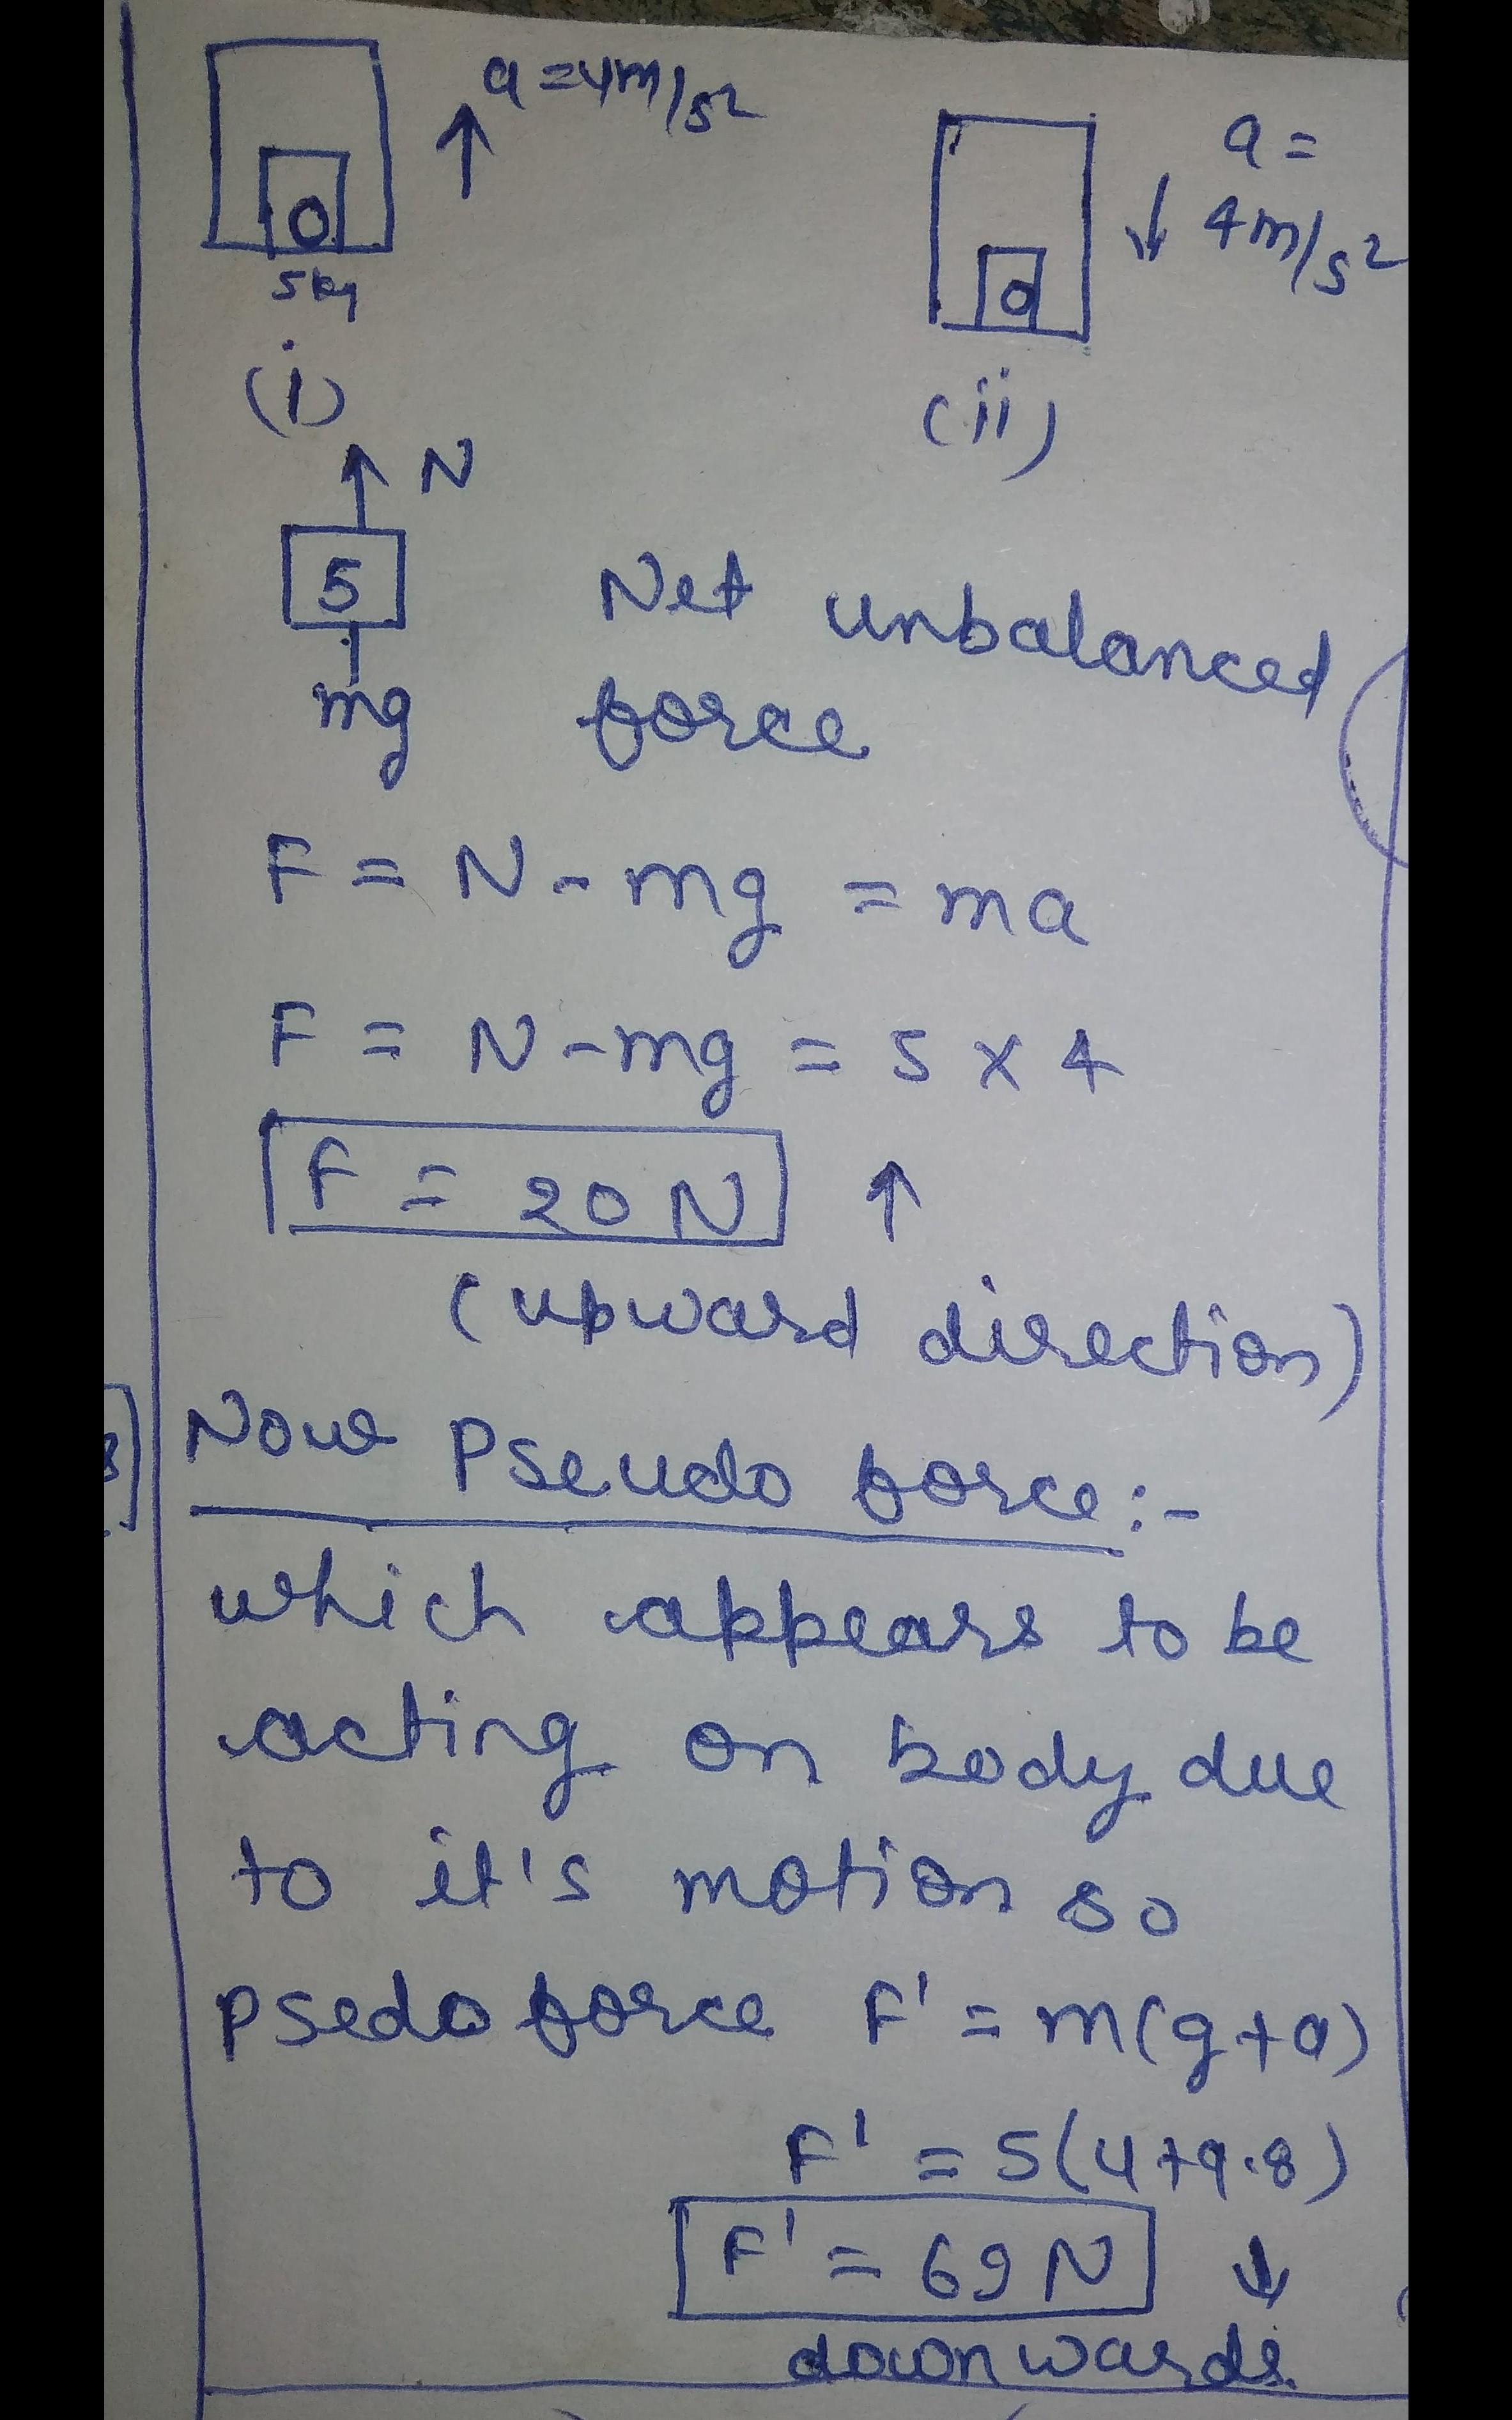 a = 4m/s²
a =
4m/s²
5kg
(i)
(ii)
N
5
mg
Net unbalanced
force
F = N - mg = ma
F = N - mg = 5 x 4
F = 20 N ↑
(upward direction)
Now Pseudo force :-
which appears to be
acting on body due
to it's motion so
psedo force F' = m(g+a)
F' = 5(4+9.8)
F' = 69 N ↓
downwards